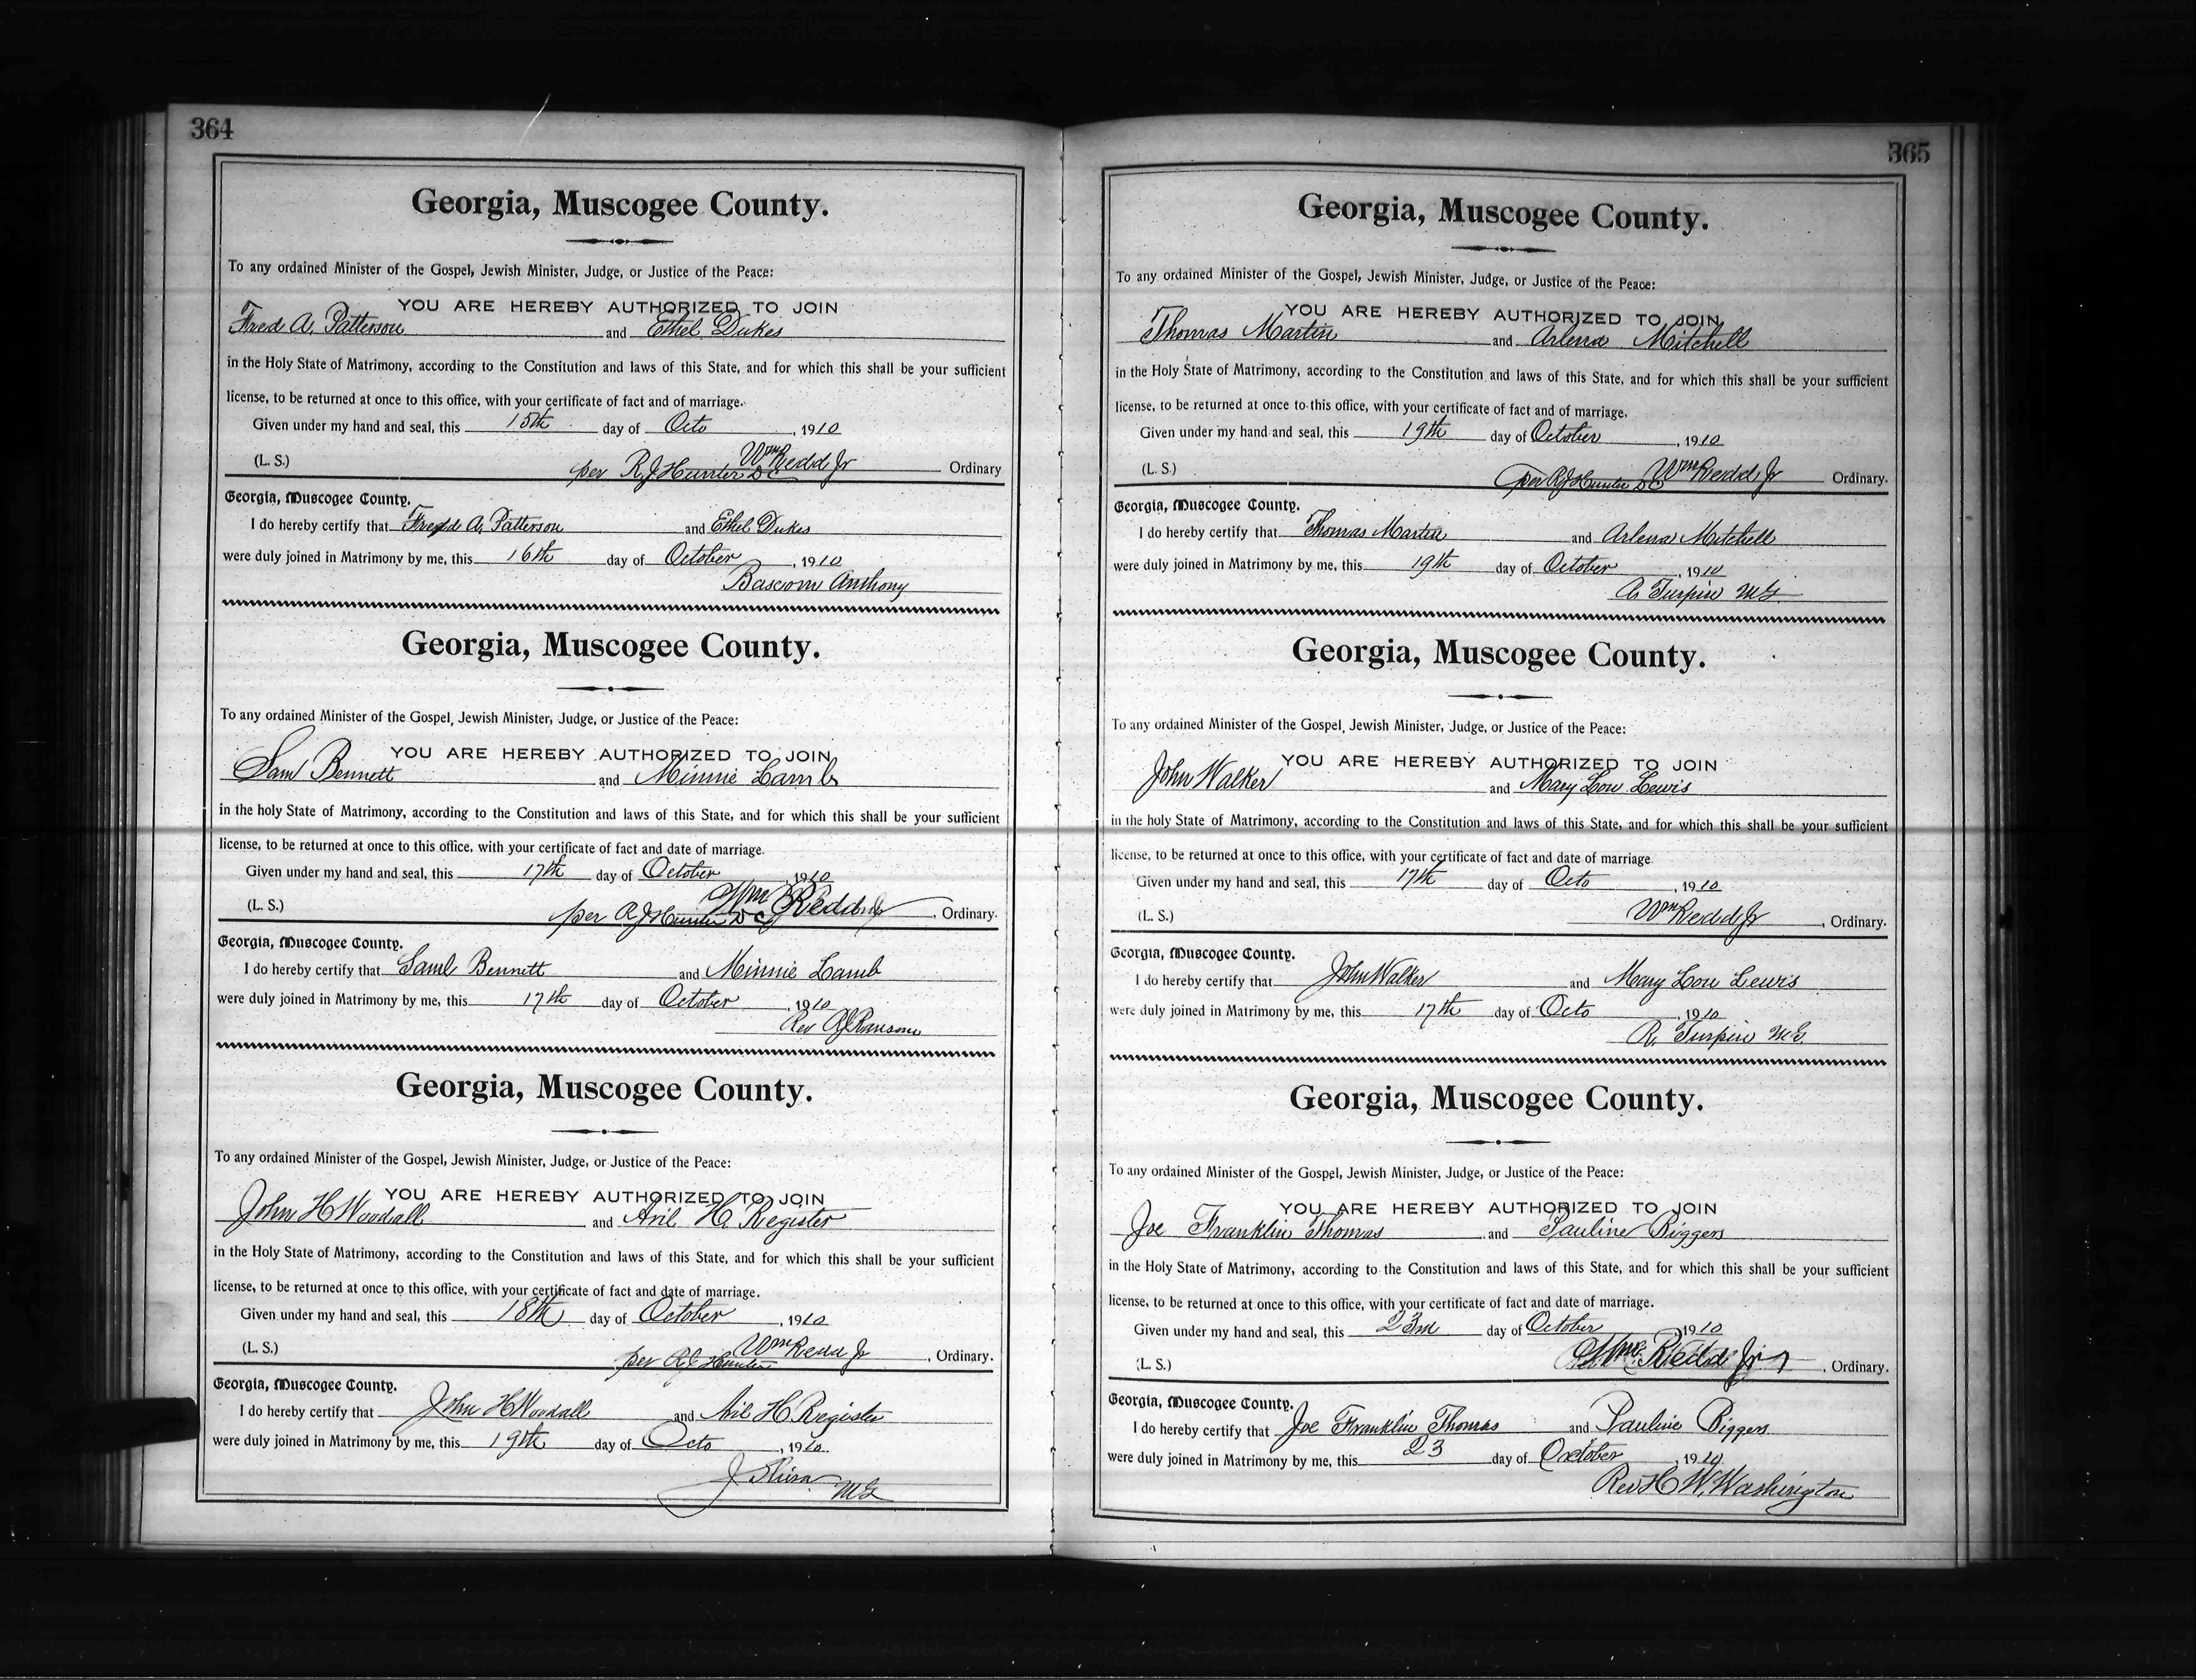 364
Georgia, Muscogee County.
To any ordained Minister of the Gospel, Jewish Minister, Judge, or Justice of the Peace:
YOU ARE HEREBY AUTHORIZED TO JOIN
Fred A. Patterson and Ethel Dukes
in the Holy State of Matrimony, according to the Constitution and laws of this State, and for which this shall be your sufficient
license, to be returned at once to this office, with your certificate of fact and of marriage.
Given under my hand and seal, this 15th day of Octo, 1910
(L. S.) per R J Hunter D C Wm Redd Jr Ordinary
Georgia, Muscogee County.
I do hereby certify that Fred A. Patterson and Ethel Dukes
were duly joined in Matrimony by me, this 16th day of October, 1910
Bascom Anthony
Georgia, Muscogee County.
To any ordained Minister of the Gospel, Jewish Minister, Judge, or Justice of the Peace:
YOU ARE HEREBY AUTHORIZED TO JOIN
Sam Bennett and Minnie Lamb
in the holy State of Matrimony, according to the Constitution and laws of this State, and for which this shall be your sufficient
license, to be returned at once to this office, with your certificate of fact and date of marriage.
Given under my hand and seal, this 17th day of October, 1910
(L. S.) per R J Hunter D C Wm Redd Jr, Ordinary.
Georgia, Muscogee County.
I do hereby certify that Saml Bennett and Minnie Lamb
were duly joined in Matrimony by me, this 17th day of October, 1910
Rev Ransom
Georgia, Muscogee County.
To any ordained Minister of the Gospel, Jewish Minister, Judge, or Justice of the Peace:
YOU ARE HEREBY AUTHORIZED TO JOIN
John H Woodall and Avil H. Register
in the Holy State of Matrimony, according to the Constitution and laws of this State, and for which this shall be your sufficient
license, to be returned at once to this office, with your certificate of fact and date of marriage.
Given under my hand and seal, this 18th day of October, 1910
(L. S.) per R J Hunter Wm Redd Jr, Ordinary.
Georgia, Muscogee County.
I do hereby certify that John H Woodall and Avil H. Register
were duly joined in Matrimony by me, this 19th day of Octo, 1910.
J MG
365
Georgia, Muscogee County.
To any ordained Minister of the Gospel, Jewish Minister, Judge, or Justice of the Peace:
YOU ARE HEREBY AUTHORIZED TO JOIN
Thomas Martin and Arlena Mitchell
in the Holy State of Matrimony, according to the Constitution and laws of this State, and for which this shall be your sufficient
license, to be returned at once to this office, with your certificate of fact and of marriage.
Given under my hand and seal, this 19th day of October, 1910
(L. S.) per R J Hunter D C Wm Redd Jr Ordinary.
Georgia, Muscogee County.
I do hereby certify that Thomas Martin and Arlena Mitchell
were duly joined in Matrimony by me, this 19th day of October, 1910
A. Turpin M G
Georgia, Muscogee County.
To any ordained Minister of the Gospel, Jewish Minister, Judge, or Justice of the Peace:
YOU ARE HEREBY AUTHORIZED TO JOIN
John Walker and Mary Lou Lewis
in the holy State of Matrimony, according to the Constitution and laws of this State, and for which this shall be your sufficient
license, to be returned at once to this office, with your certificate of fact and date of marriage.
Given under my hand and seal, this 17th day of Octo, 1910
(L. S.) Wm Redd Jr, Ordinary.
Georgia, Muscogee County.
I do hereby certify that John Walker and Mary Lou Lewis
were duly joined in Matrimony by me, this 17th day of Octo, 1910
R. Turpin M G.
Georgia, Muscogee County.
To any ordained Minister of the Gospel, Jewish Minister, Judge, or Justice of the Peace:
YOU ARE HEREBY AUTHORIZED TO JOIN
Joe Franklin Thomas and Pauline Biggers
in the Holy State of Matrimony, according to the Constitution and laws of this State, and for which this shall be your sufficient
license, to be returned at once to this office, with your certificate of fact and date of marriage.
Given under my hand and seal, this 23rd day of October, 1910
(L. S.) Wm. Redd Jr, Ordinary.
Georgia, Muscogee County.
I do hereby certify that Joe Franklin Thomas and Pauline Biggers
were duly joined in Matrimony by me, this 23 day of October, 1910.
Rev H. W. Washington